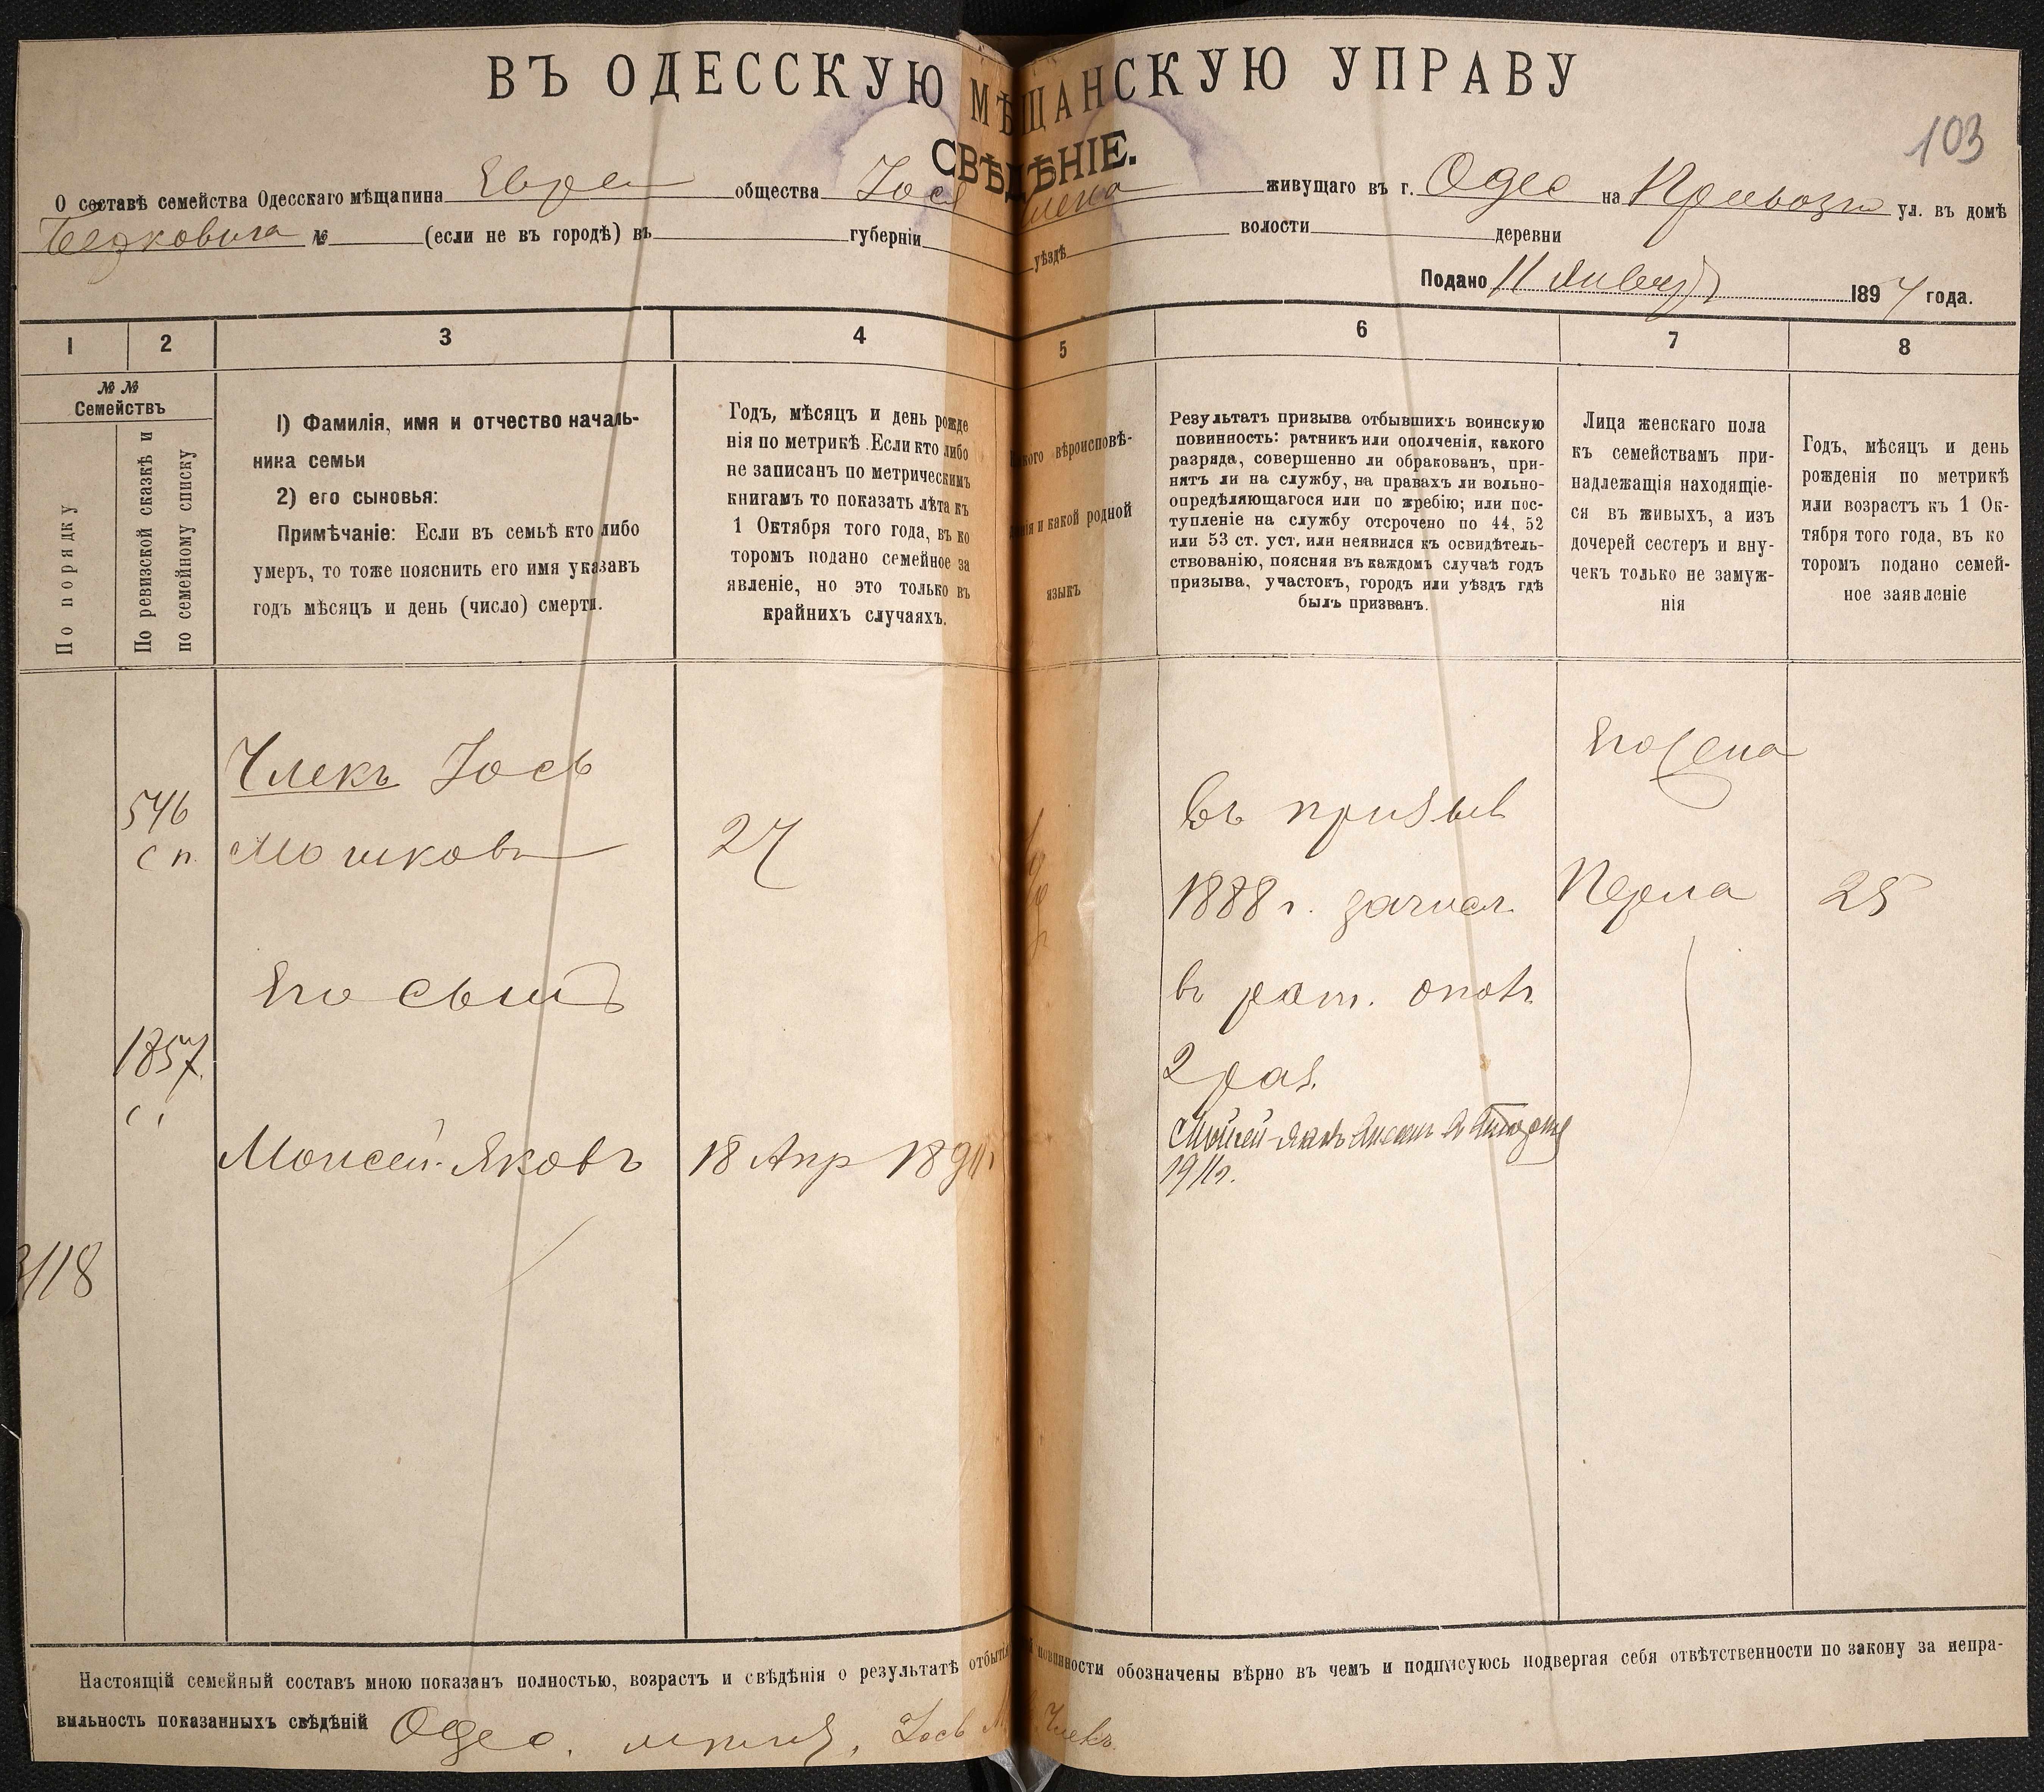 ВЪ ОДЕССКУЮ МѢЩАНСКУЮ УПРАВУ
103
СВѢДѢНІЕ.
О составѣ семейства Одесскаго мѣщанина Евреи общества Іося Члека живущаго въ г. Одес на Привозн ул. въ домѣ
№ (если не въ городѣ) въ губерніи уѣздѣ волости деревни
Подано 11 Января 1897 года.
1 2 3 4 5 6 7 8
№ № Семействъ
По порядку
По ревизской сказкѣ и по семейному списку
1) Фамилія, имя и отчество началь-
ника семьи
2) его сыновья:
Примѣчаніе: Если въ семьѣ кто либо
умеръ, то тоже пояснить его имя указавъ
годъ мѣсяцъ и день (число) смерти.
Годъ, мѣсяцъ и день рожде
нія по метрикѣ. Если кто либо
не записанъ по метрическимъ
книгамъ то показать лѣта къ
1 Октября того года, въ ко
торомъ подано семейное за
явленіе, но это только въ
крайнихъ случаяхъ.
какого вѣроисповѣ-
данія и какой родной
языкъ
Результатъ призыва отбывшихъ воинскую
повинность: ратникъ или ополченія, какого
разряда, совершенно ли обракованъ, при-
нятъ ли на службу, на правахъ ли вольно-
опредѣляющагося или по жребію; или пос-
тупленіе на службу отсрочено по 44, 52
или 53 ст. уст. или неявился къ освидѣтель-
ствованію, поясняя въ каждомъ случаѣ годъ
призыва, участокъ, городъ или уѣздъ гдѣ
былъ призванъ.
Лица женскаго пола
къ семействамъ при-
надлежащія находящіе-
ся въ живыхъ, а изъ
дочерей сестеръ и вну-
чекъ только не замуж-
нія
Годъ, мѣсяцъ и день
рожденія по метрикѣ
или возрастъ къ 1 Ок-
тября того года, въ ко
торомъ подано семей-
ное заявленіе
546
с п.
Члекъ Іось
Мошковъ
27
Его сынъ
1857
Моисей-Яковъ
18 Апр 1890
3118
въ призывъ
1888 г. зачисл
въ рат. опол.
2 раз.
Мойсей-Яковъ
1911г.
Его жена
Перла
25
Настоящій семейный составъ мною показанъ полностью, возрастъ и свѣдѣнія о результатѣ отбытія повинности обозначены вѣрно въ чемъ и подписуюсь подвергая себя отвѣтственности по закону за непра-
вильность показанныхъ свѣдѣній Одес. Іось М. Члекъ